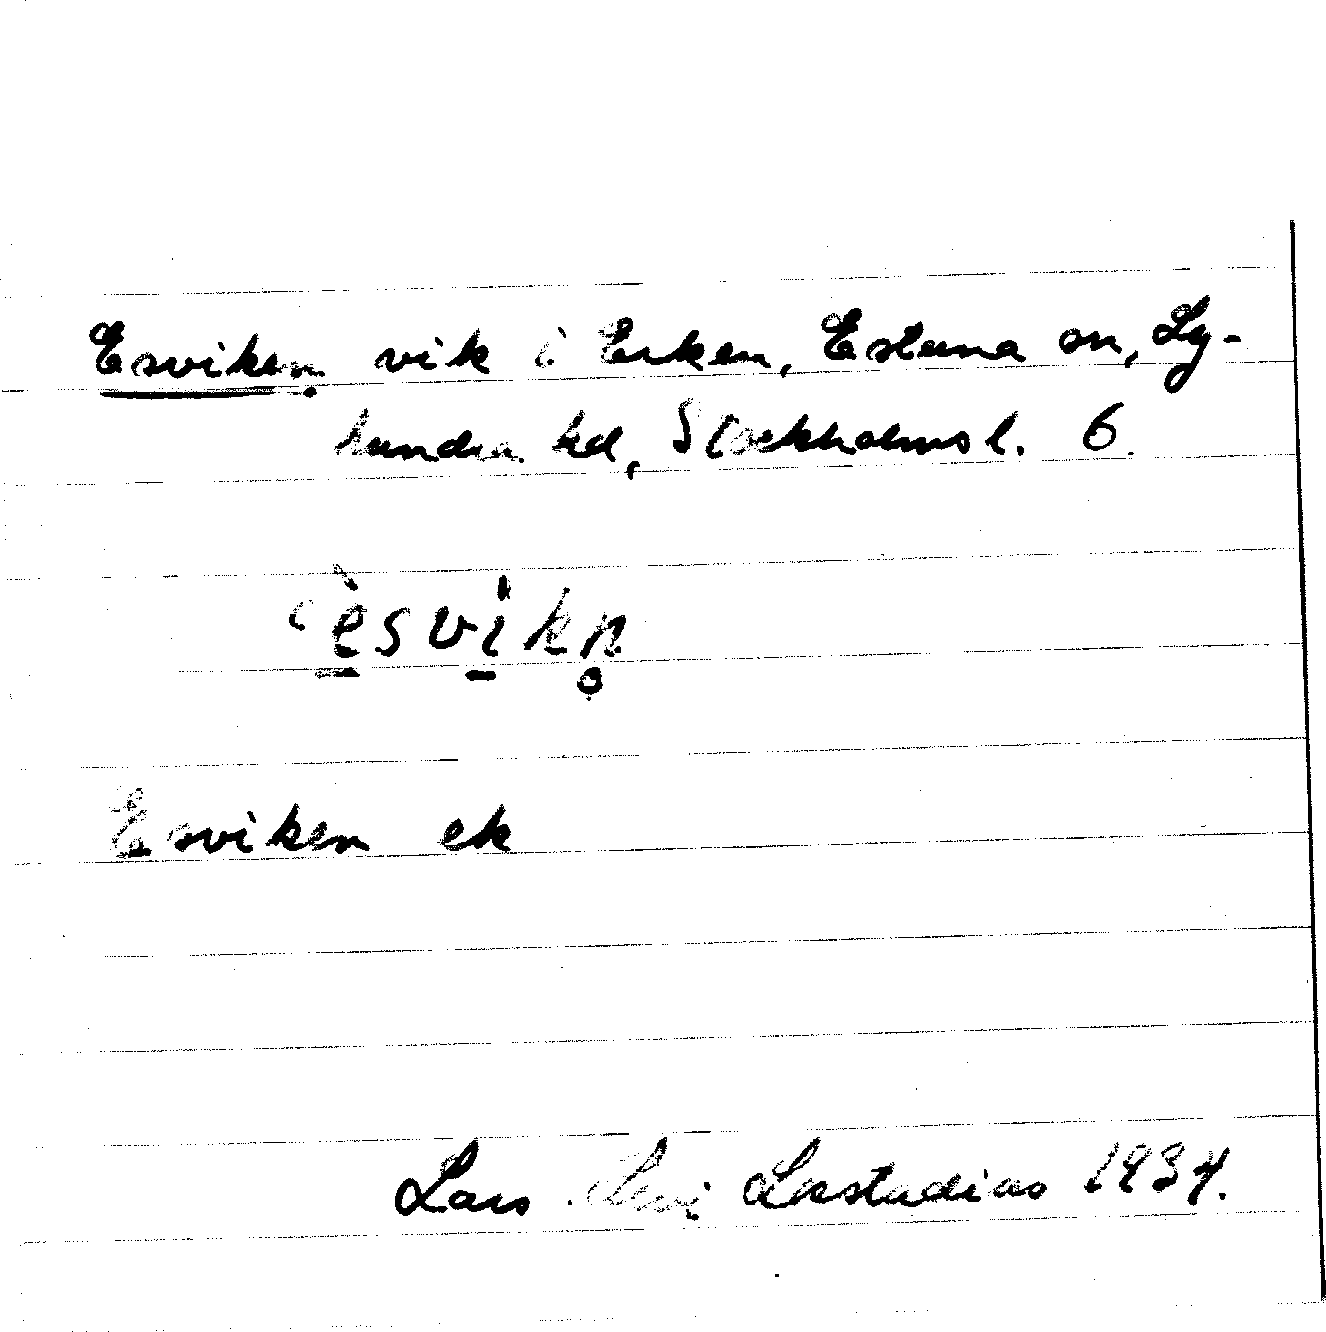 Esviken vik i Erken, Estuna sn, Ly-
hundra hd, Stockholms l. 6.
ʿèsvikn̥
Esviken ek
Lars Levi Læstadius 1934.